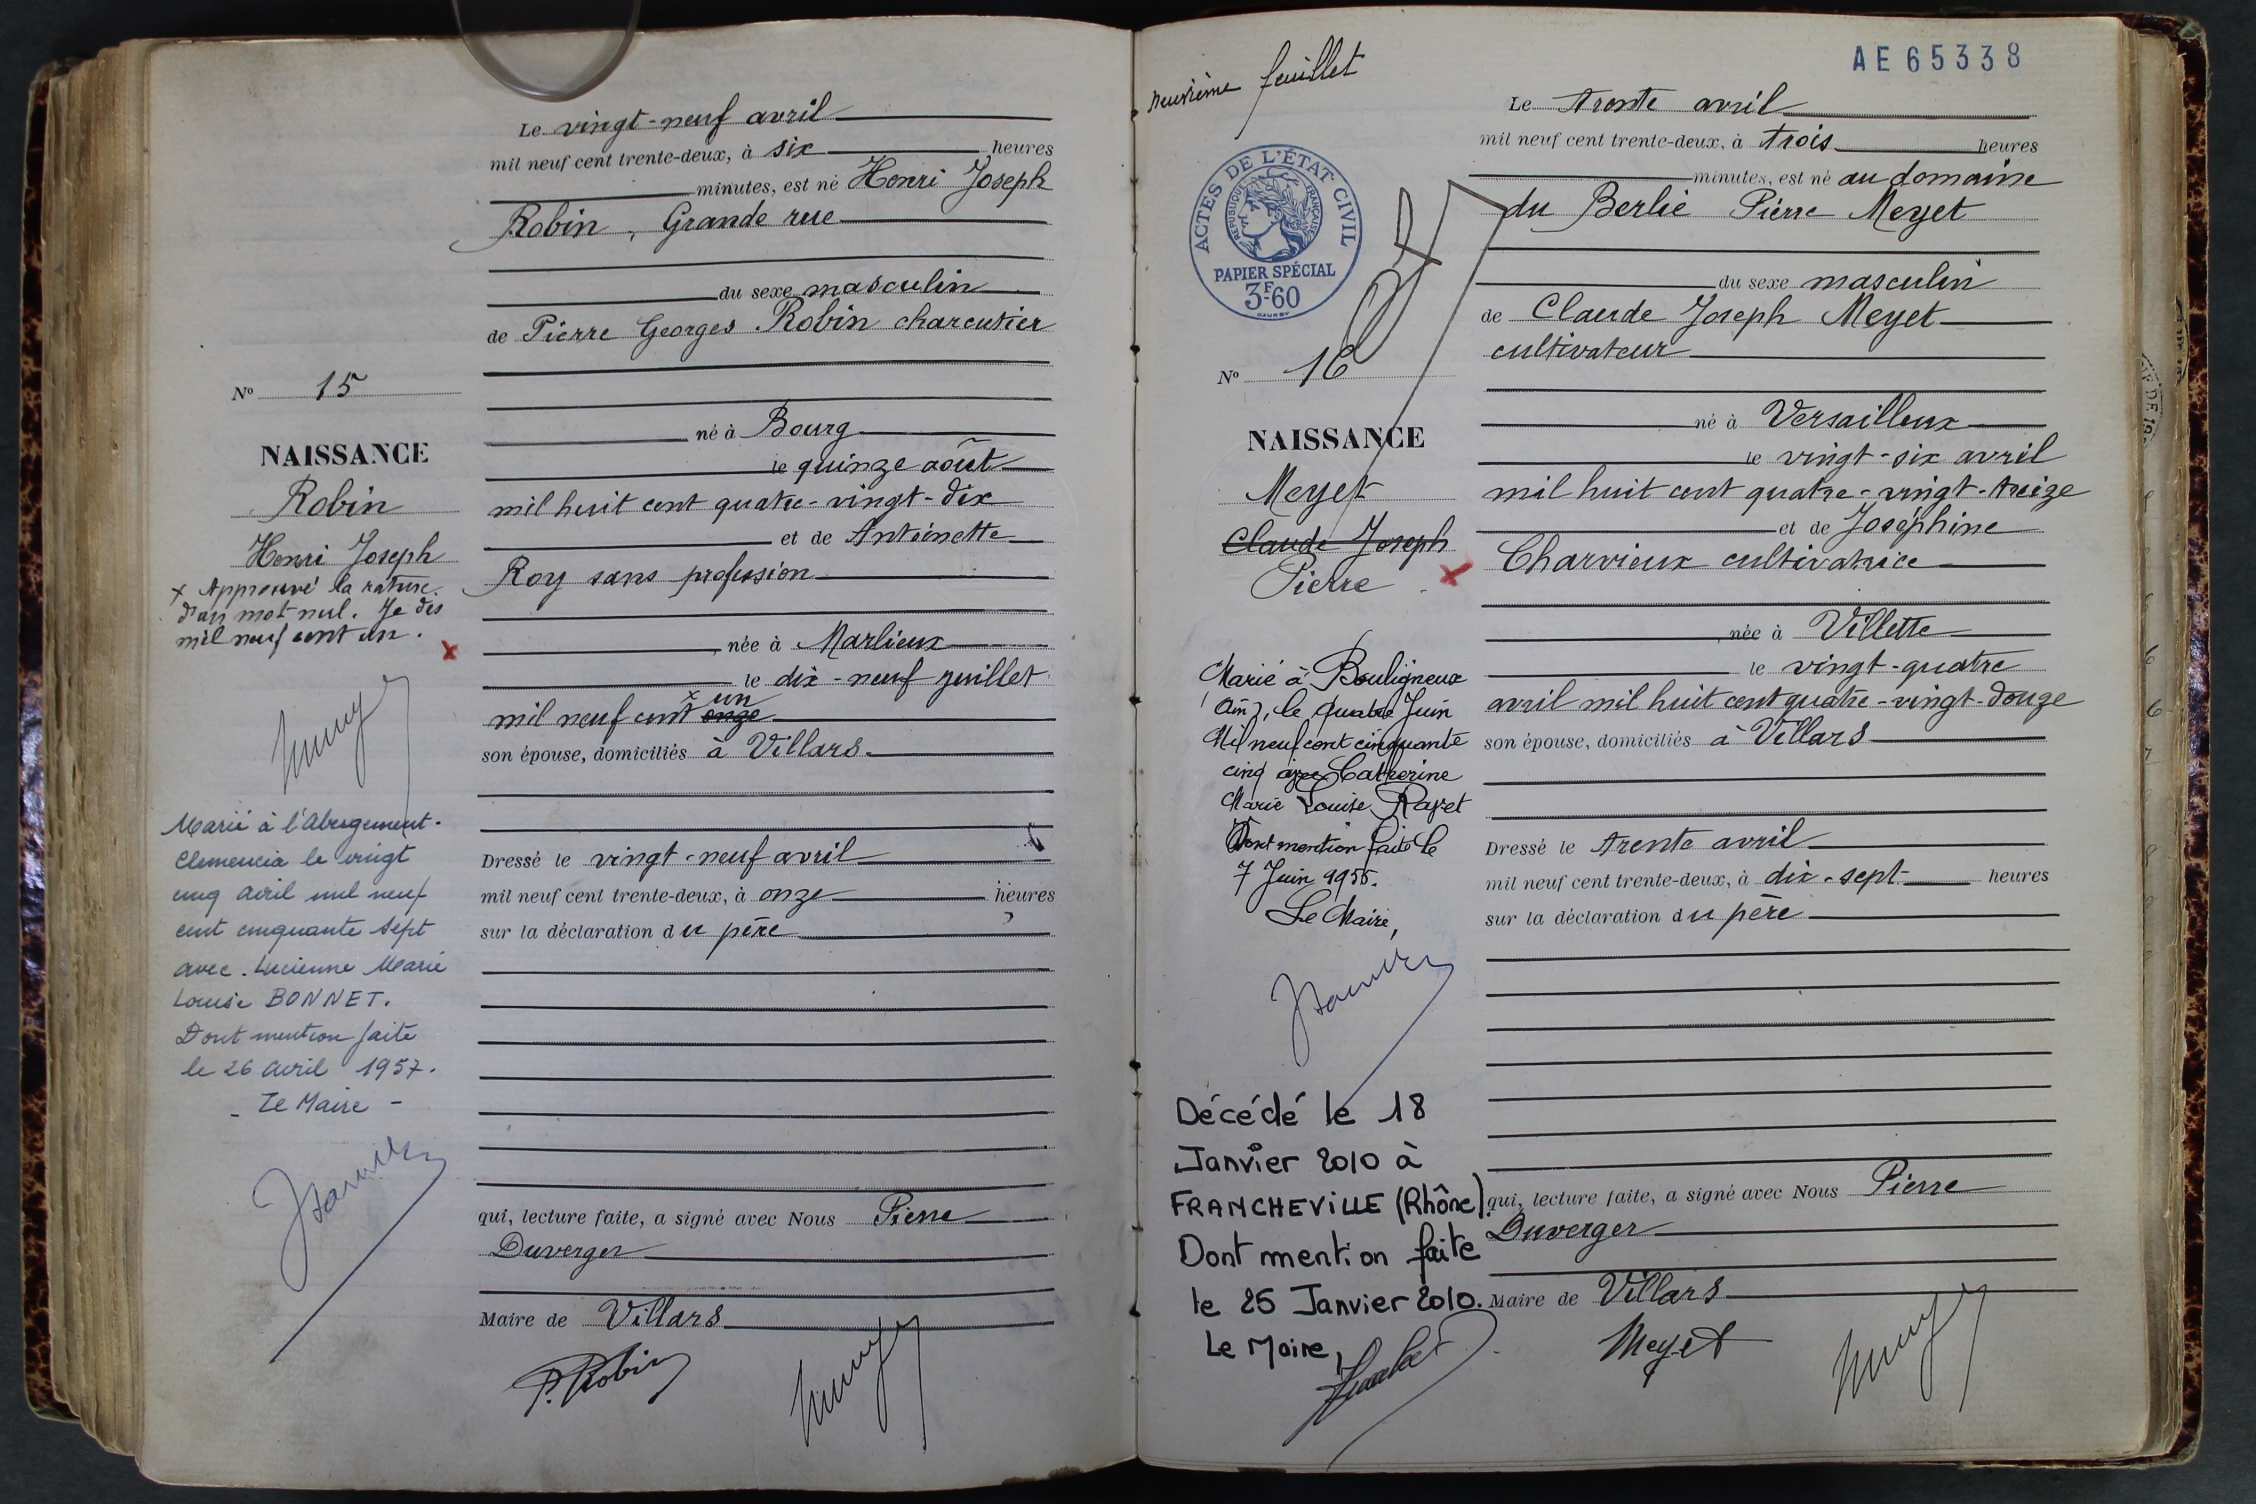 Le vingt-neuf avril
mil neuf cent trente-deux, à six heures
minutes, est né Henri Joseph
Robin, Grande rue
du sexe masculin
de Pierre Georges Robin charcutier
né à Bourg
le quinze août
mil huit cent quatre-vingt-dix
et de Antoinette
Roy sans profession
née à Marlieux
le dix-neuf juillet
x un
mil neuf cent onze
son épouse, domiciliés à Villars
Dressé le vingt-neuf avril
mil neuf cent trente-deux, à onze heures
sur la déclaration du père
qui, lecture faite, a signé avec Nous Pierre
Duverger
Maire de Villars
P. Robin
No 15
NAISSANCE
Robin
Henri Joseph
x Approuvé la rature
d'un mot nul. Je dis
mil neuf cent un.
x
Marié à l'Abergement-
Clemencia le vingt
cinq avril mil neuf
cent cinquante sept
avec Lucienne Marie
Louise BONNET.
Dont mention faite
le 26 avril 1957.
- Le Maire -
neuvième feuillet
AE65338
ACTES DE L'ÉTAT CIVIL
RÉPUBLIQUE FRANÇAISE
PAPIER SPÉCIAL
3F-60
Le trente avril
mil neuf cent trente-deux, à trois heures
minutes, est né au domaine
du Berlie Pierre Meyet
du sexe masculin
de Claude Joseph Meyet
cultivateur
né à Versailleux
le vingt-six avril
mil huit cent quatre-vingt-treize
et de Joséphine
Charvieux cultivatrice
née à Villette
le vingt-quatre
avril mil huit cent quatre-vingt-douze
son épouse, domiciliés à Villars
Dressé le trente avril
mil neuf cent trente-deux, à dix-sept heures
sur la déclaration du père
qui, lecture faite, a signé avec Nous Pierre
Duverger
Maire de Villars
Meyet
No 16
NAISSANCE
Meyet
Claude Joseph
Pierre
x
Marié à Bouligneux
(Ain), le quatre Juin
Mil neuf cent cinquante
cinq avec Catherine
Marie Louise Rayet
Dont mention faite le
7 Juin 1955.
Le Maire,
Décédé le 18
Janvier 2010 à
FRANCHEVILLE (Rhône).
Dont mention faite
le 25 Janvier 2010.
Le Maire,